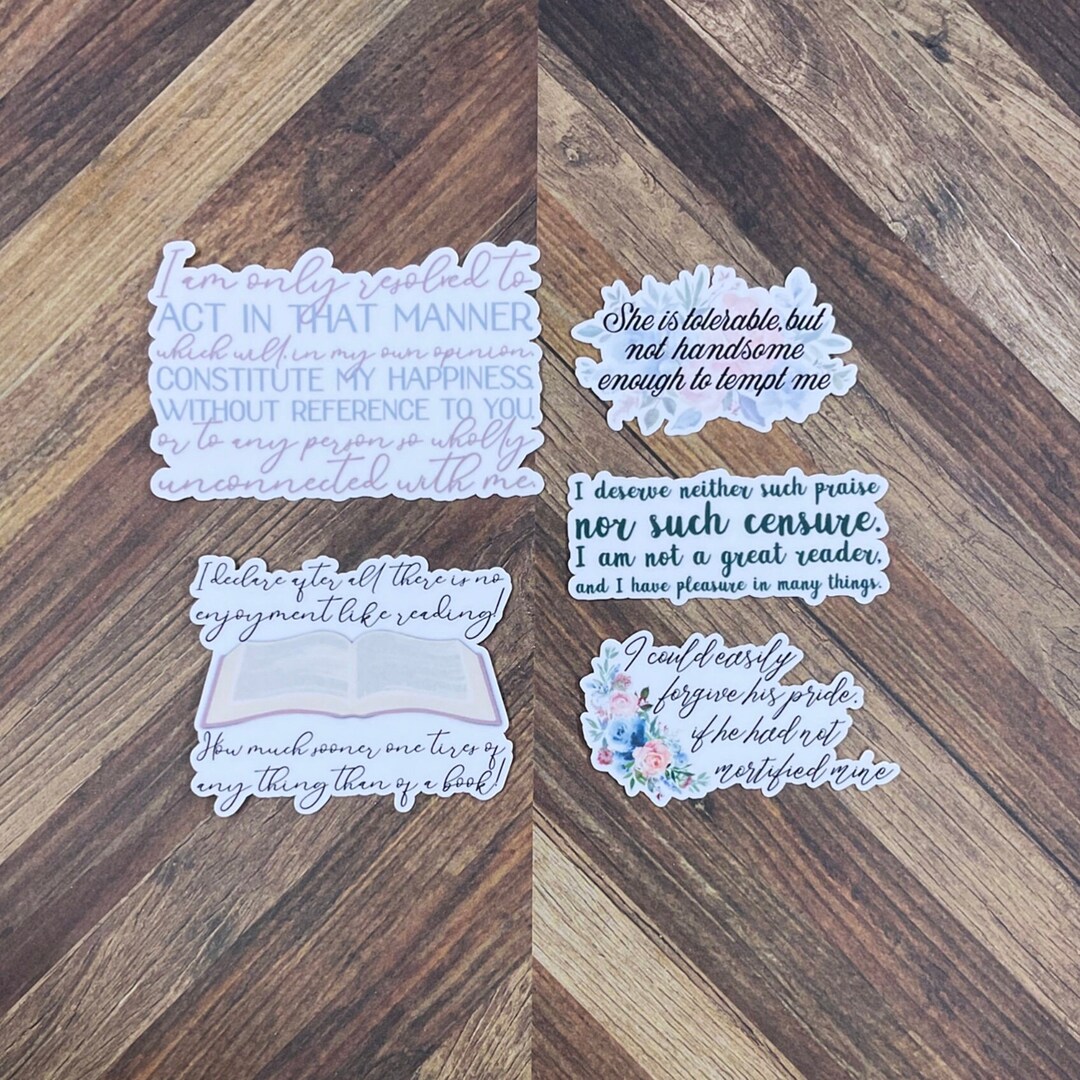 I am only resolved to
ACT IN THAT MANNER
which will, in my own opinion,
CONSTITUTE MY HAPPINESS,
WITHOUT REFERENCE TO YOU,
or to any person so wholly
unconnected with me.
I declare after all there is no
enjoyment like reading!
How much sooner one tires of
any thing than of a book!
She is tolerable, but
not handsome
enough to tempt me
I deserve neither such praise
nor such censure.
I am not a great reader,
and I have pleasure in many things.
I could easily
forgive his pride,
if he had not
mortified mine